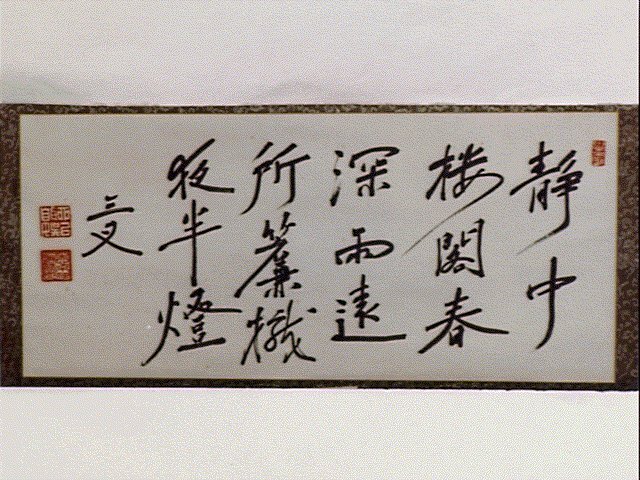 靜中
楼閣春
深雨遠
所簾櫳
夜半燈